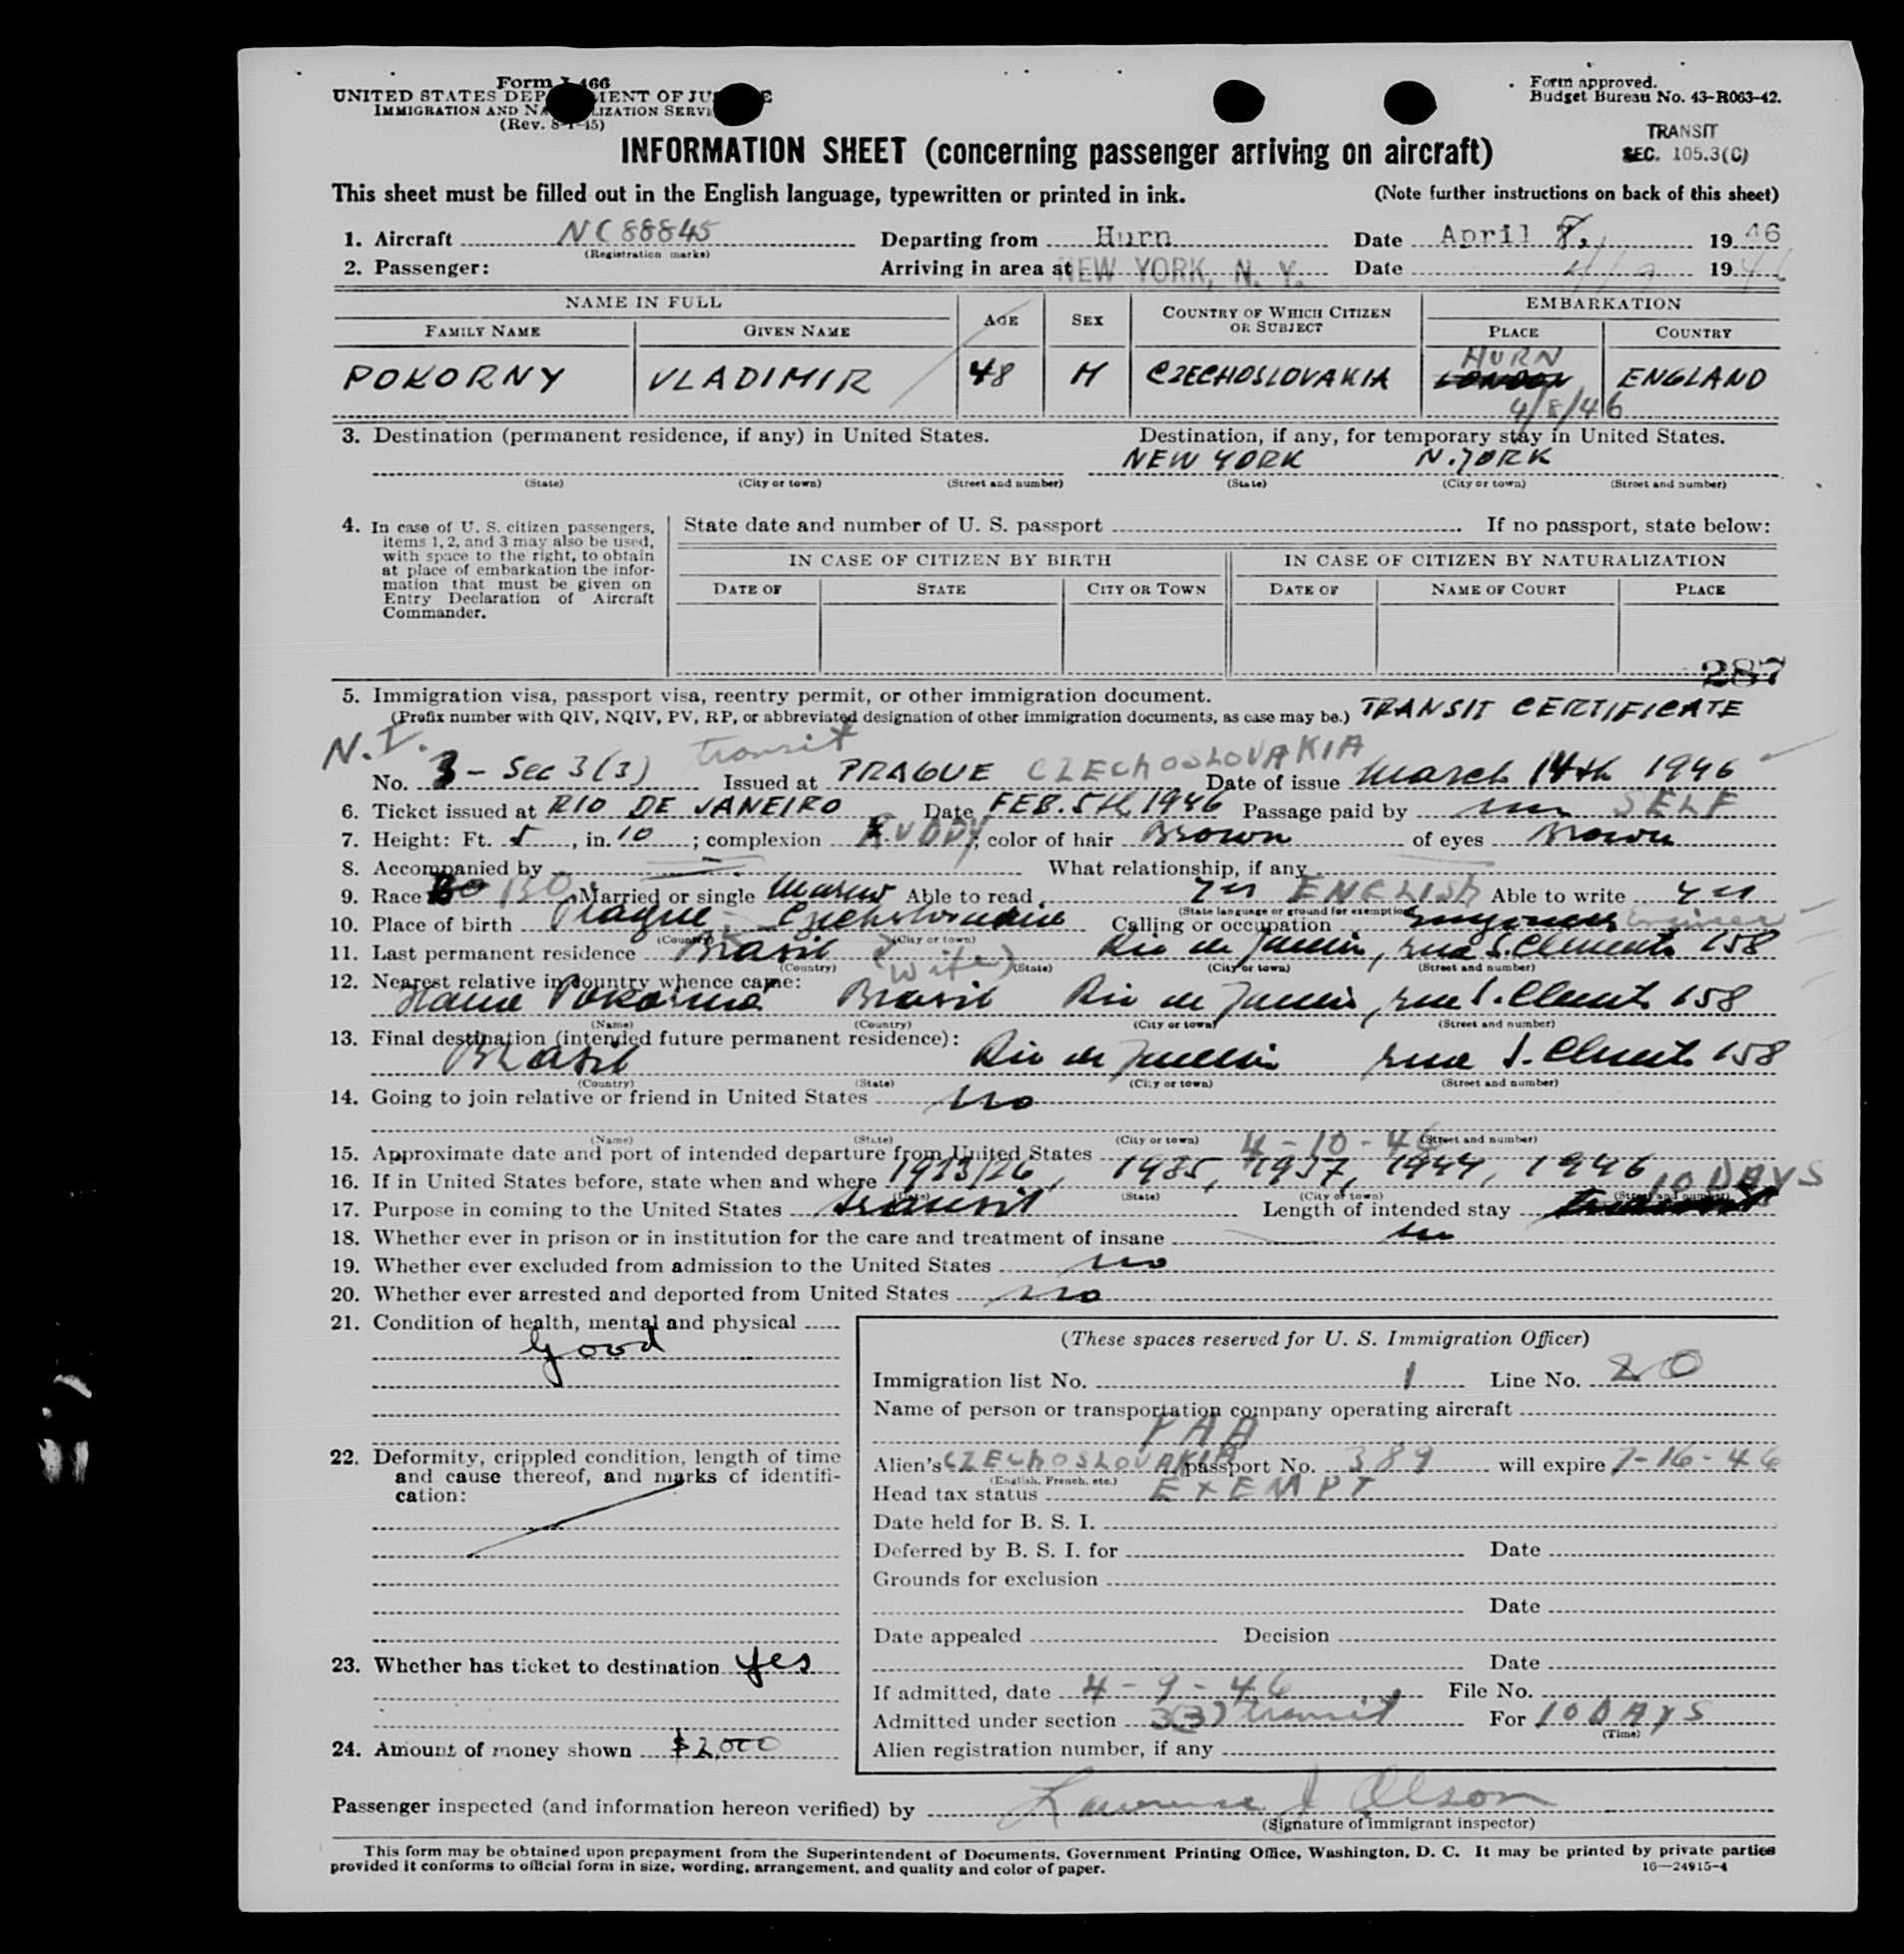 Form I-466
UNITED STATES DEPARTMENT OF JUSTICE
IMMIGRATION AND NATURALIZATION SERVICE
(Rev. 8-1-45)
Form approved.
Budget Bureau No. 43-R063-42.
TRANSIT
SEC. 105.3(C)
INFORMATION SHEET (concerning passenger arriving on aircraft)
This sheet must be filled out in the English language, typewritten or printed in ink. (Note further instructions on back of this sheet)
1. Aircraft NC88845 Departing from Hurn Date April 8, 1946
(Registration marks)
2. Passenger: Arriving in area at NEW YORK, N. Y. Date 4/9 1946
NAME IN FULL AGE SEX COUNTRY OF WHICH CITIZEN OR SUBJECT EMBARKATION
FAMILY NAME GIVEN NAME PLACE COUNTRY
HURN
POKORNY VLADIMIR 48 M CZECHOSLOVAKIA LONDON ENGLAND
4/8/46
3. Destination (permanent residence, if any) in United States. Destination, if any, for temporary stay in United States.
NEW YORK N.YORK
(State) (City or town) (Street and number) (State) (City or town) (Street and number)
4. In case of U. S. citizen passengers, items 1, 2, and 3 may also be used, with space to the right, to obtain at place of embarkation the information that must be given on Entry Declaration of Aircraft Commander.
State date and number of U. S. passport If no passport, state below:
IN CASE OF CITIZEN BY BIRTH IN CASE OF CITIZEN BY NATURALIZATION
DATE OF STATE CITY OR TOWN DATE OF NAME OF COURT PLACE
287
5. Immigration visa, passport visa, reentry permit, or other immigration document.
(Prefix number with QIV, NQIV, PV, RP, or abbreviated designation of other immigration documents, as case may be.) TRANSIT CERTIFICATE
N.I. transit
No. 3 - Sec 3(3) Issued at PRAGUE CZECHOSLOVAKIA Date of issue March 14th 1946
6. Ticket issued at RIO DE JANEIRO Date FEB. 5th 1946 Passage paid by SELF
7. Height: Ft. 5, in. 10; complexion RUDDY; color of hair Brown of eyes Brown
8. Accompanied by What relationship, if any
9. Race BO Married or single Able to read yes ENGLISH Able to write yes
(State language or ground for exemption)
10. Place of birth Prague - Calling or occupation Engineer
(Country) (City or town)
11. Last permanent residence Brasil Rio de Janeiro, rua S. Clemente 158
(Country) (State) (City or town) (Street and number)
12. Nearest relative in country whence came: (wife)
Brasil Rio de Janeiro, rua S. Clemente 158
(Name) (Country) (City or town) (Street and number)
13. Final destination (intended future permanent residence):
Brasil Rio de Janeiro rua S. Clemente 158
(Country) (State) (City or town) (Street and number)
14. Going to join relative or friend in United States no
(Name) (State) (City or town) (Street and number)
15. Approximate date and port of intended departure from United States 4-10-46
16. If in United States before, state when and where 1923/26, 1935, 1937, 1944, 1946
(Date) (State) (City or town) (Street and number)
17. Purpose in coming to the United States transit Length of intended stay 10 DAYS
18. Whether ever in prison or in institution for the care and treatment of insane no
19. Whether ever excluded from admission to the United States no
20. Whether ever arrested and deported from United States no
21. Condition of health, mental and physical
good
22. Deformity, crippled condition, length of time and cause thereof, and marks of identification:
23. Whether has ticket to destination yes
24. Amount of money shown $2,000
(These spaces reserved for U. S. Immigration Officer)
Immigration list No. 1 Line No. 20
Name of person or transportation company operating aircraft
PAA
Alien's CZECHOSLOVAKIA passport No. 389 will expire 7-16-46
(English, French, etc.)
Head tax status EXEMPT
Date held for B. S. I.
Deferred by B. S. I. for Date
Grounds for exclusion
Date
Date appealed Decision
Date
If admitted, date 4-9-46 File No.
Admitted under section 3(3) transit For 10 DAYS
(Time)
Alien registration number, if any
Passenger inspected (and information hereon verified) by Lawrence J Olson
(Signature of immigrant inspector)
This form may be obtained upon prepayment from the Superintendent of Documents, Government Printing Office, Washington, D. C. It may be printed by private parties
provided it conforms to official form in size, wording, arrangement, and quality and color of paper.
16—24915-4